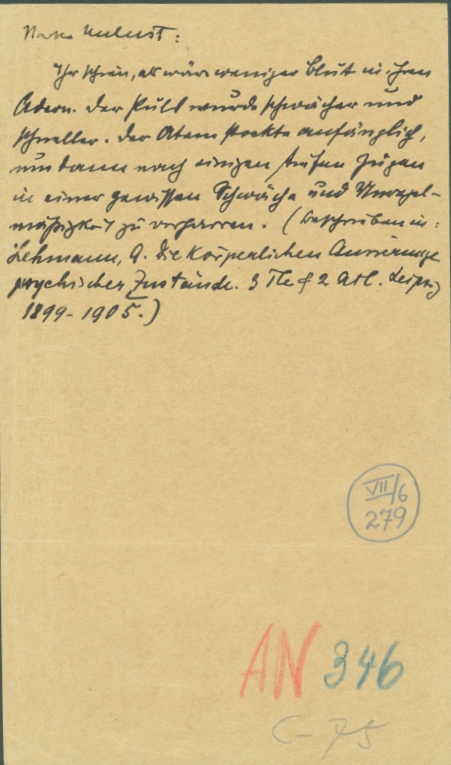 Starke Unlust:
Ihr schien, als wäre weniger Blut in ihren
Adern. Der Puls wurde schwächer und
schneller. Der Atem stockte anfänglich,
um dann nach einigen tiefen Zügen
in einer gewissen Schwäche und Unregel-
mäßigkeit zu verharren. (beschrieben in:
Lehmann, A. Die körperlichen
psychischer Zustände. 3 Tle & 2 Atl. Leipzig
1899-1905.)
VII/6
279
AN 346
C-75